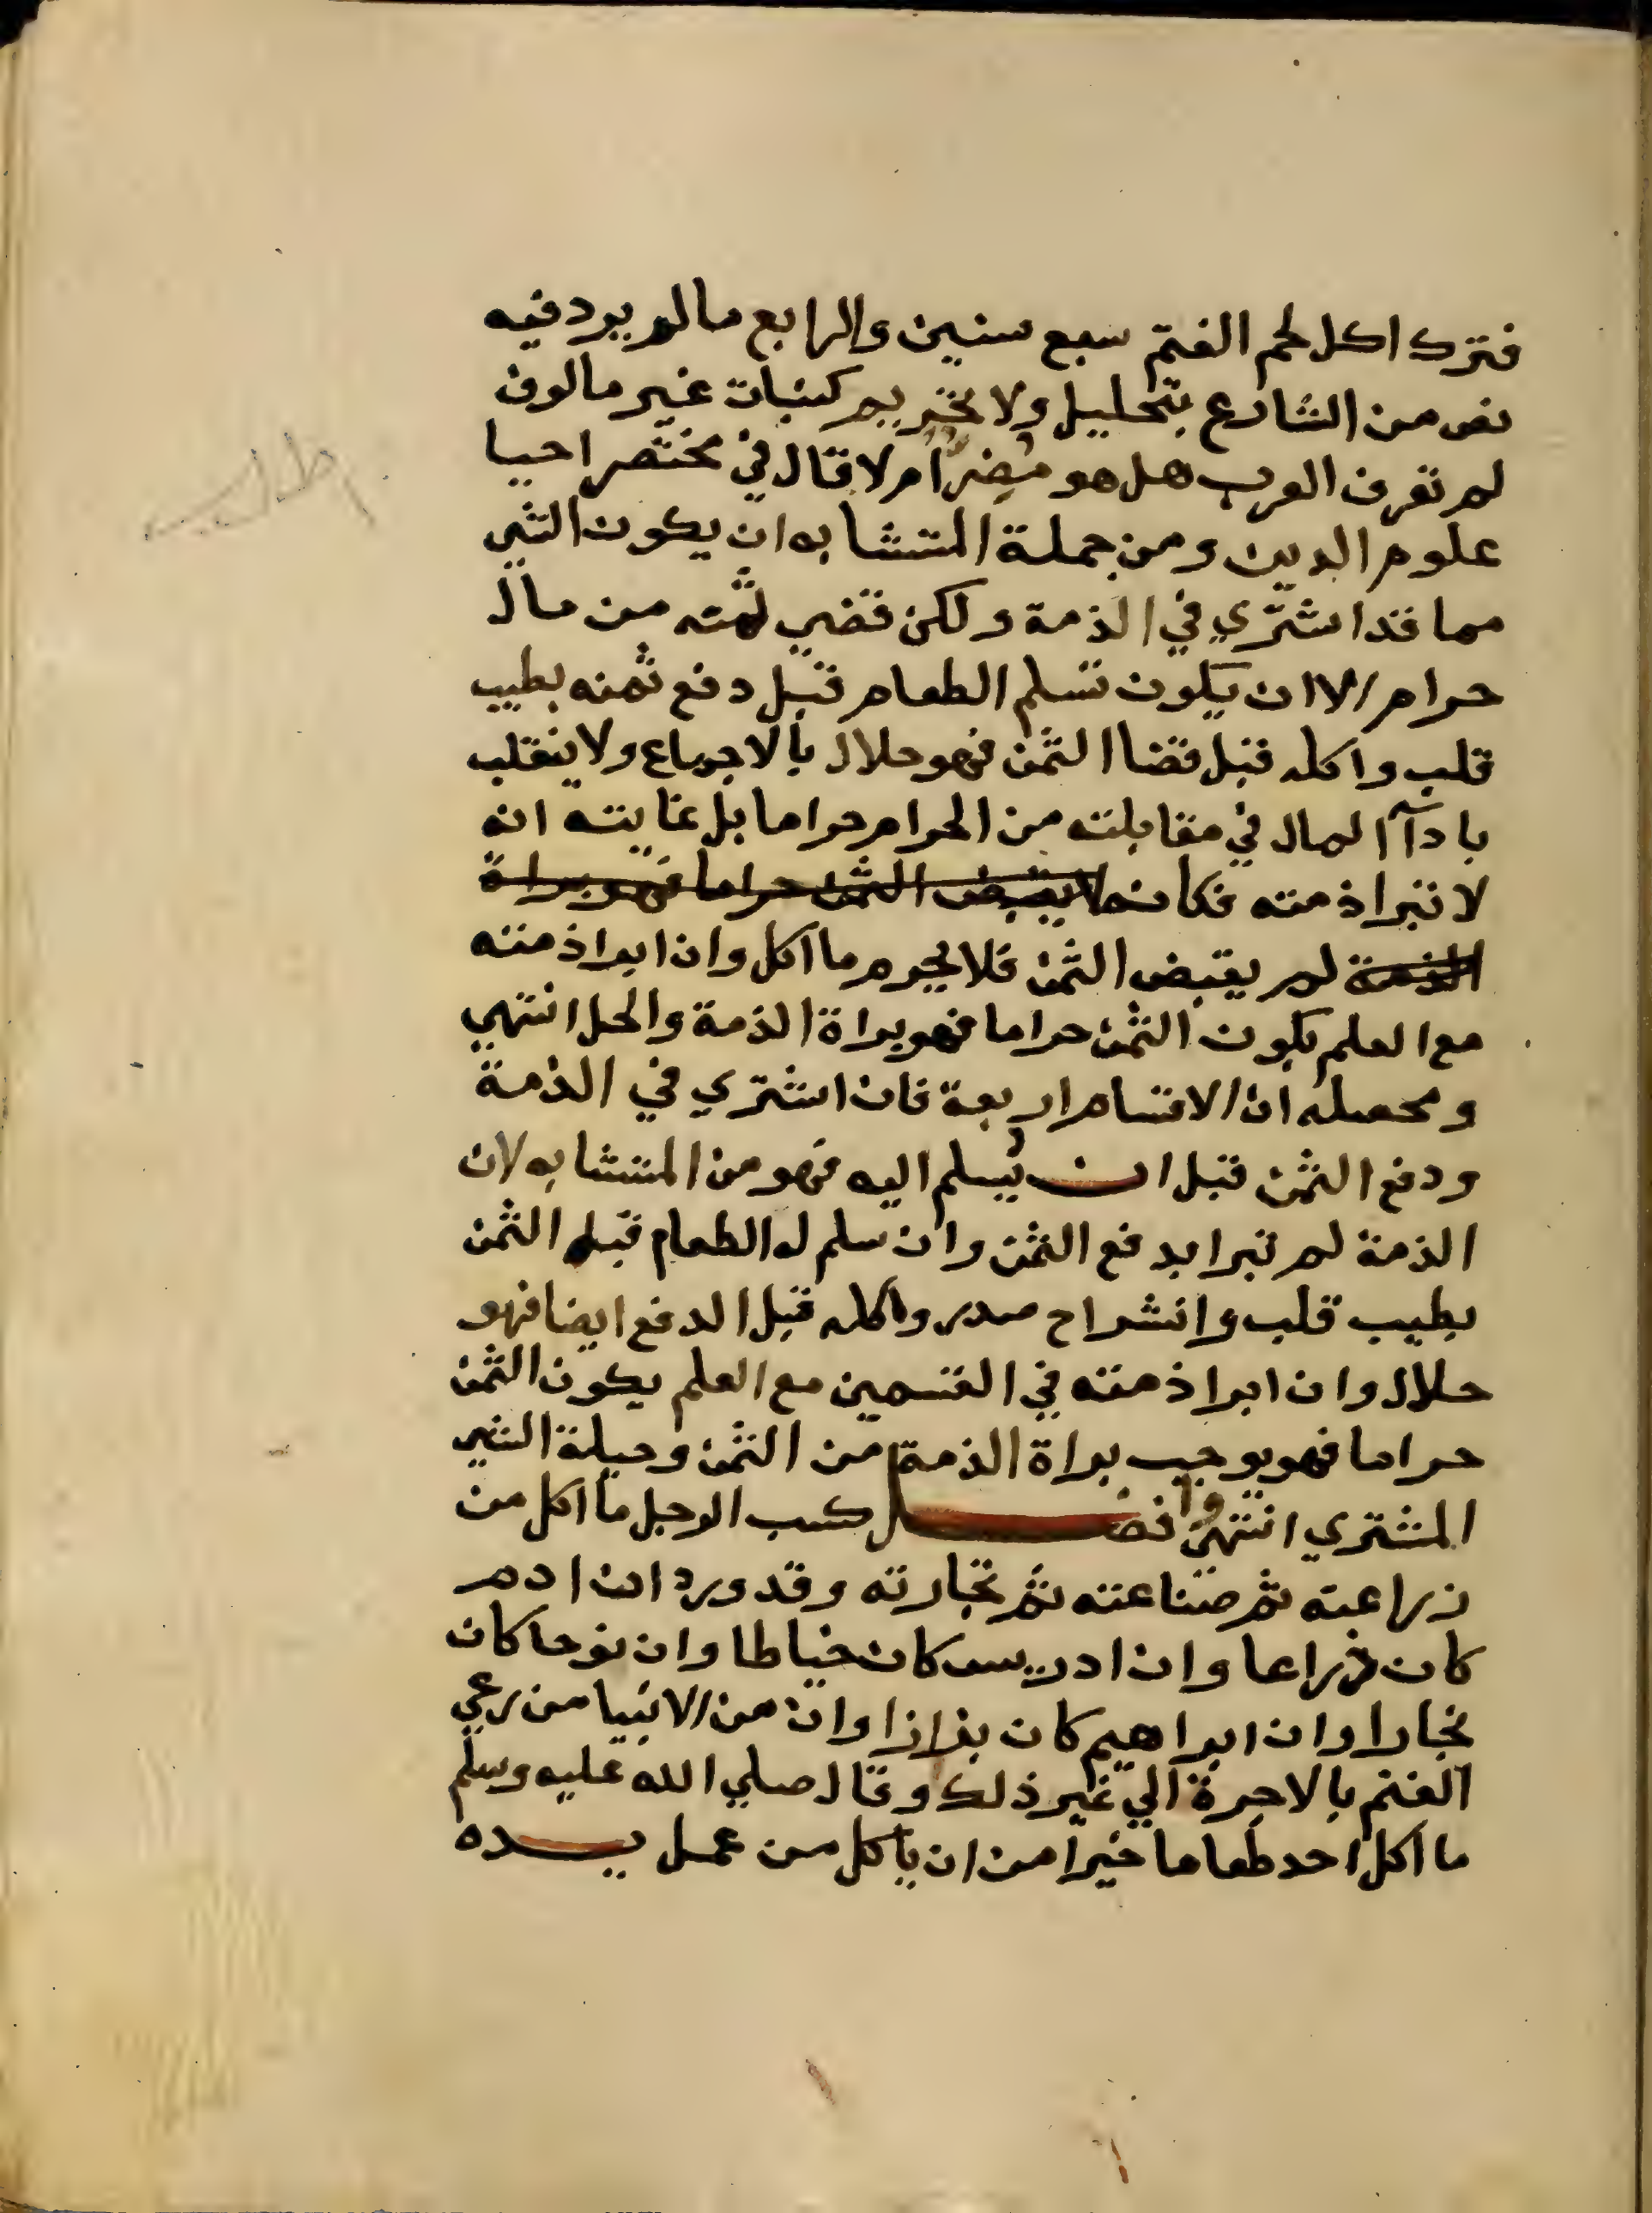 فترك اكل لحم الغنم سبع سنين والرابع ما لم يرد فيه
نص من الشارع بتحليل ولا بتحريم كنبات غير مالوف
لم تعرف العرب هل هو مضرّ ام لا قال في مختصر احيا
علوم الدين ومن جملة المتشابه ان يكون الشي
مما قد اشترى في الذمة ولكن قضي ثمنه من مال
حرام الا ان يكون تسلم الطعام قبل دفع ثمنه بطيب
قلب واكله قبل قضا الثمن فهو حلال بالاجماع ولا ينقلب
بادآ المال في مقابلته من الحرام حراما بل غايته انه
لا تبرا ذمته فكانه لا يقبض الثمن حراما فهو براة
الذمة لم يقبض الثمن فلا يحرم ما اكل وان ابرا ذمته
مع العلم بكون الثمن حراما فهو براة الذمة والحل انتهي
ومحصله ان الاقسام اربعة فان اشتري في الذمة
ودفع الثمن قبل ان يسلم اليه فهو من المتشابه لان
الذمة لم تبرا بدفع الثمن وان سلم له الطعام قبل الثمن
بطيب قلب وانشراح صدر واكله قبل الدفع ايضا فهو
حلال وان ابرا ذمته في القسمين مع العلم بكون الثمن
حراما فهو يوجب براة الذمة من الثمن وحيلة الشي
المشتري انتهي وافضل كسب الرجل ما اكل من
زراعته ثم صناعته ثم تجارته وقد ورد ان ادم
كان زراعا وان ادريس كان خياطا وان نوحا كان
نجارا وان ابراهيم كان بزازا وان من الانبيا من رعي
الغنم بالاجرة الي غير ذلك وقال صلي الله عليه وسلم
ما اكل احد طعاما خيرا من ان ياكل من عمل يده